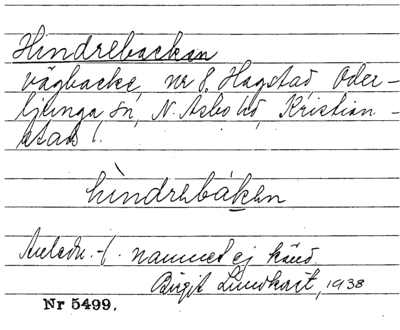 Hindrebacken
vägbacke, nr 8, Hagstad, Oder-
ljunga sn, N. Åsbo hd, Kristian-
stads l.
hìndrebáken
Anledn. t. namnet ej känd.
Birgit Lundkvist, 1938
Nr 5499.